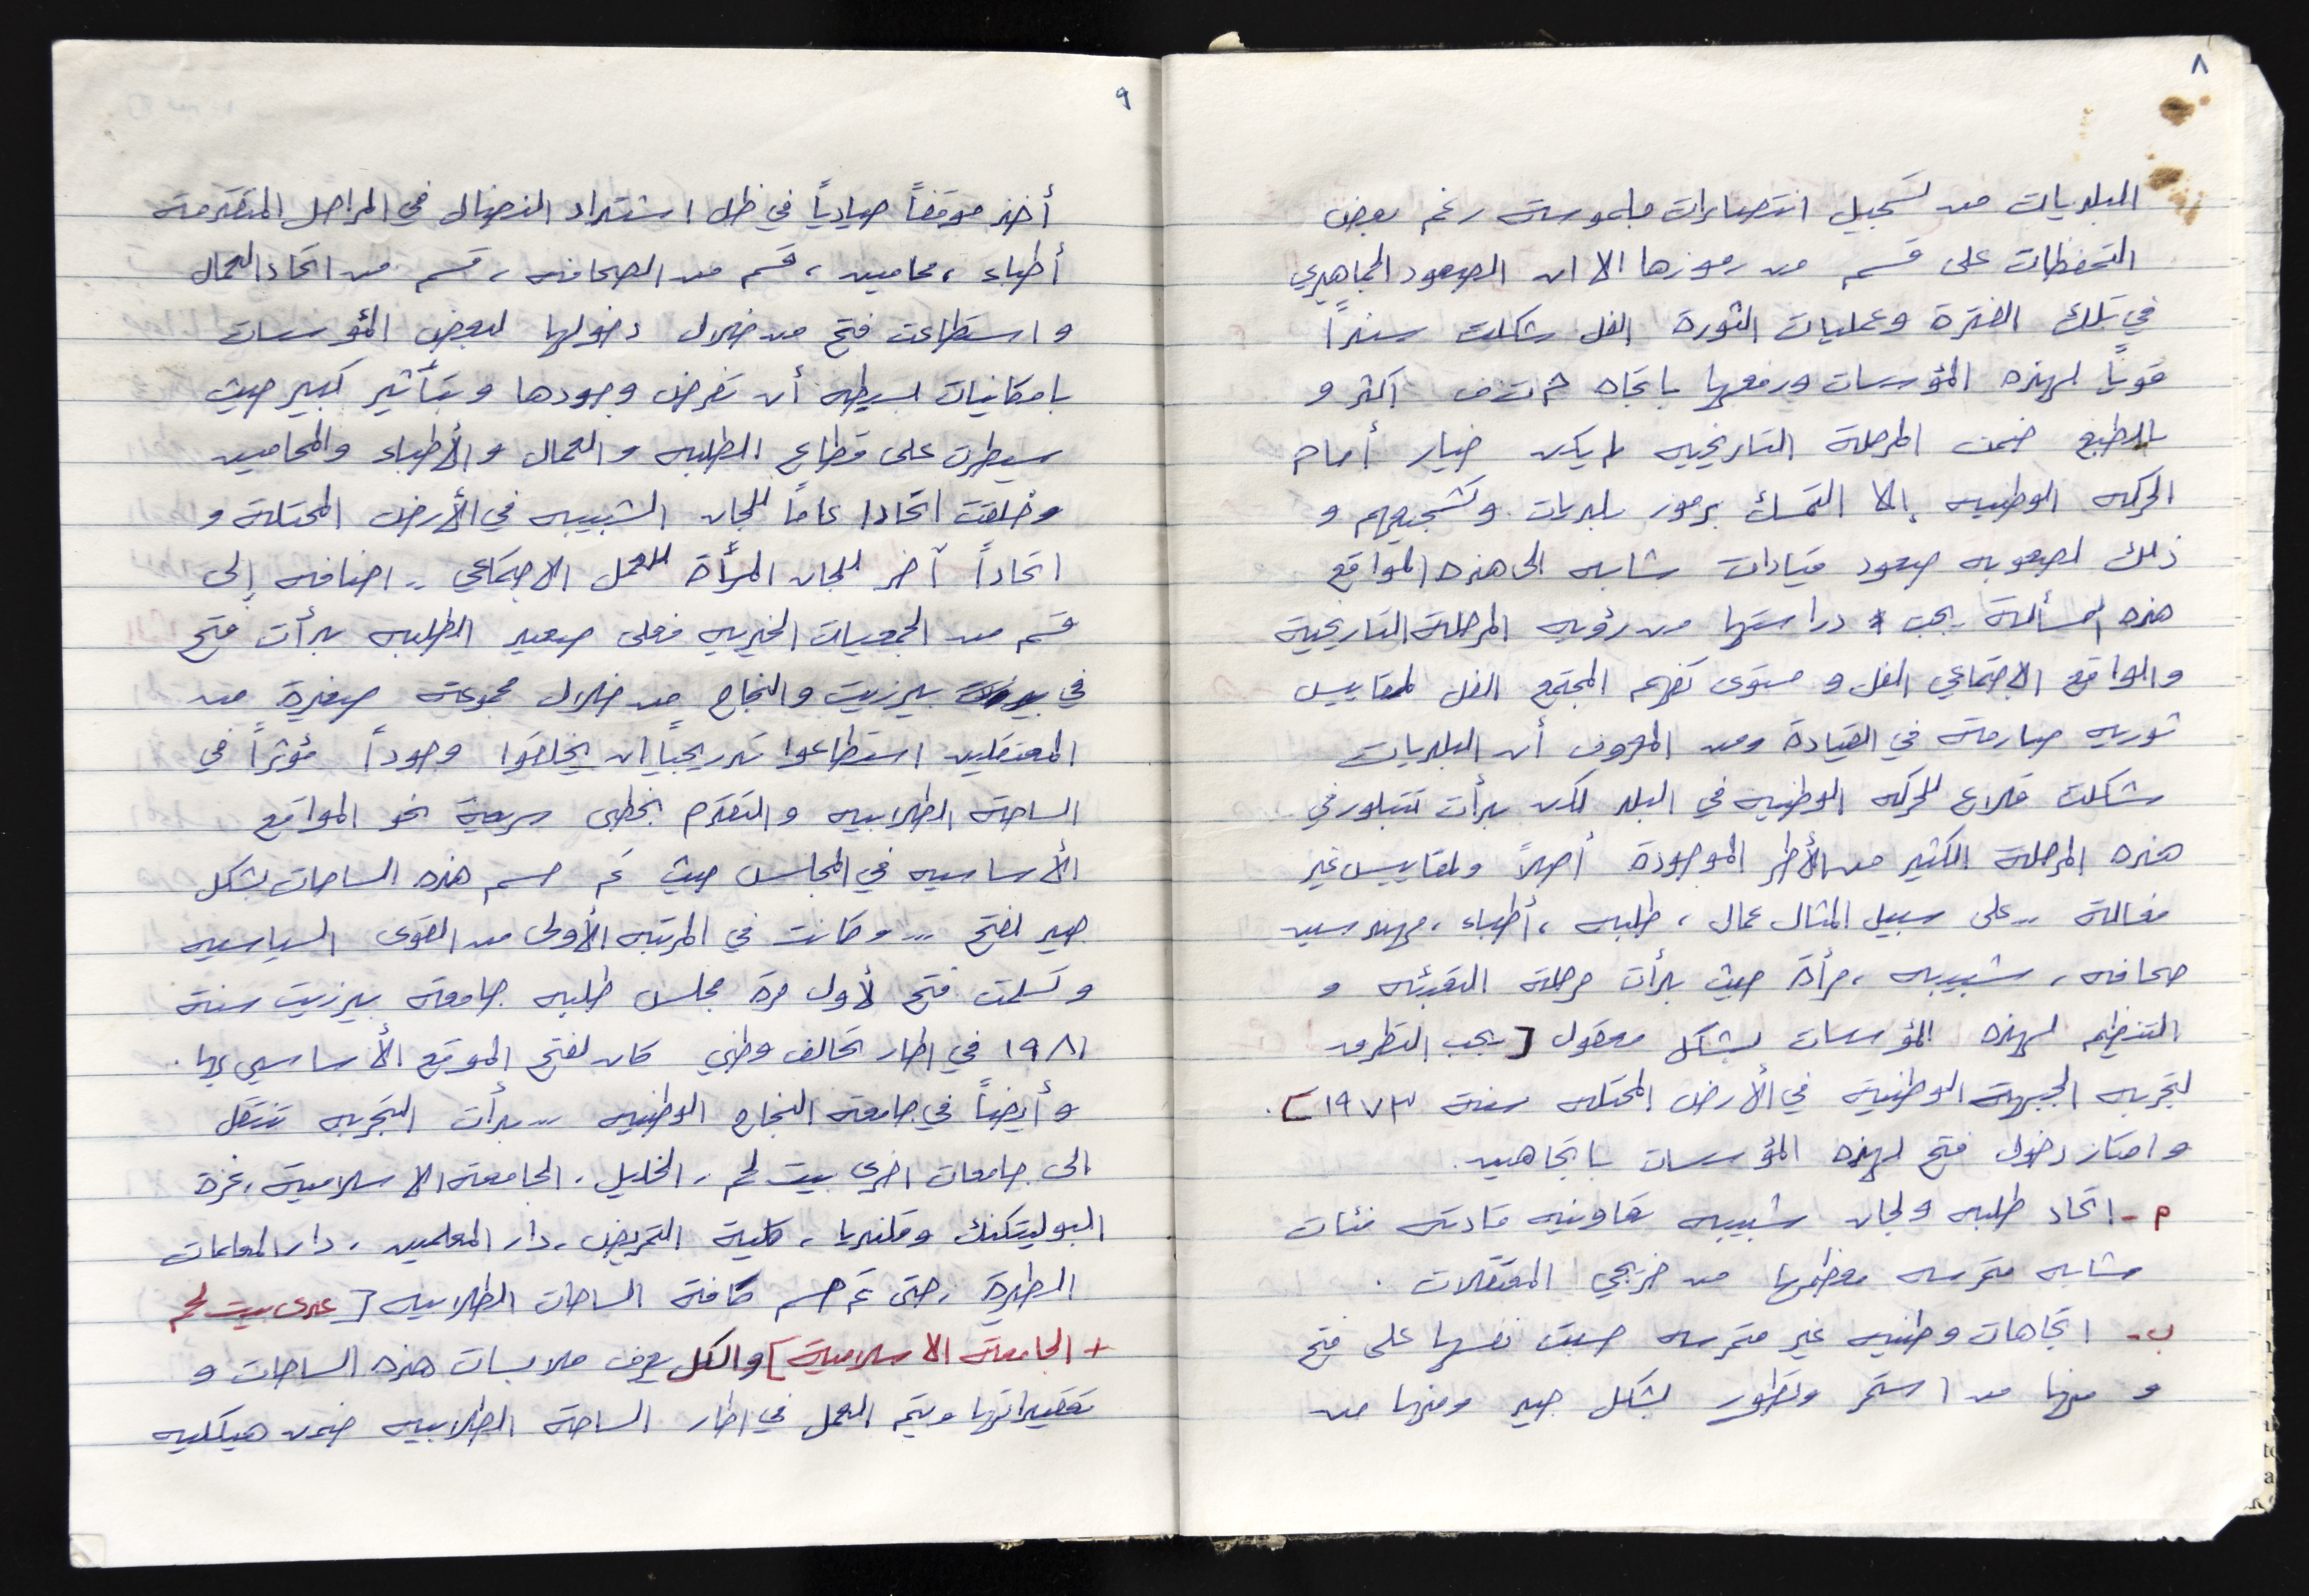 ٨
البلديات من تسجيل انتصارات ملموسة رغم بعض
التحفظات على قسم من رموزها الا ان الصعود الجماهيري
في تلك الفترة وعمليات الثورة الفل شكلت سنداً
قوياً لهذه المؤسسات ودفعها باتجاه أكثر و
بالطبع ضمن المرحلة التاريخيه لم يكن خيار أمام
الحركه الوطنيه إلا التمسك برموز بلديات وتشجيعهم و
ذلك لصعوبه صعود قيادات شابه الى هذه المواقع
هذه المسألة يجب دراستها من رؤيه المرحلة التاريخية
والواقع الاجتماعي الفل و مستوى تفهم المجتمع الفل لمقاييس
ثوريه صارمة في القيادة ومن المعروف أن البلديات
شكلت قلاع للحركه الوطنيه في البلد لكن بدأت تتبلور في
هذه المرحلة الكثير من الأطر الموجودة أصلاً ولمقاييس غير
فعالة .. على سبيل المثال عمال ، طلبه ، أطباء ، مهندسين
صحافه ، شبيبه ، مرأة حيث بدأت مرحلة التعبئه و
التنظيم لهذه المؤسسات بشكل معقول [ يجب التطرق
لتجربه الجبهة الوطنية في الأرض المحتله سنة ١٩٧٣ ] .
وامتاز دخول فتح لهذه المؤسسات باتجاهين .
م - اتحاد طلبه ولجان شبيبه تعاونيه قادته فئات
شابه متمرسه معظمها من خريجي المعتقلات .
ب - اتجاهات وطنيه غير متمرسه حسبت نفسها على فتح
و منها من استمر وتطور بشكل جيد ومنها من
٩
أخذ موقفاً حيادياً في ظل اشتداد النضال في المراحل المتقدمة
أطباء ، محامين ، قسم من الصحافه ، قسم من اتحاد العمال
و استطاعت فتح من خلال دخولها لبعض المؤسسات
بامكانيات بسيطه أن تفرض وجودها وبتأثير كبير حيث
سيطرت على قطاع الطلبه والعمال والأطباء والمحامين
وخلقت اتحادا عاماً للجان الشبيبه في الأرض المحتلة و
اتحاداً آخر للجان المرأة للعمل الاجتماعي .. اضافه إلى
قسم من الجمعيات الخيريه فعلى صعيد الطلبه بدأت فتح
في بيرزيت والنجاح من خلال مجموعة صغيرة من
المعتقلين استطاعوا تدريجياً ان يخلقوا وجوداً مؤثراً في
الساحة الطلابيه والتقدم بخطى سريعة نحو المواقع
الأساسيه في المجالس حيث تم حسم هذه الساحات بشكل
جيد لفتح ... وكانت في المرتبه الأولى من القوى السياسيه
وتسلمت فتح لأول مرة مجلس طلبه جامعة بيرزيت سنة
١٩٨١ في اطار تحالف وطني كان لفتح الموقع الأساسي بها .
و أيضاً في جامعة النجاح الوطنيه .. بدأت التجربه تنتقل
الى جامعات اخرى بيت لحم ، الخليل ، الجامعة الاسلامية ، غزة
البوليتكنك وقلنديا ، كلية التمريض ، دار المعلمين ، دار المعلمات
الطيرة ، حتى تم حسم كافة الساحات الطلابيه [ عدى بيت لحم
+ الجامعة الاسلامية ] والكل يعرف ملابسات هذه الساحات و
تعقيداتها ويتم العمل في اطار الساحة الطلابيه ضمن هيكليه